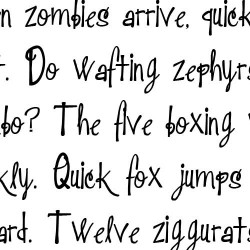 n zombies arrive, quick
t. Do wafting zephyrs
bo? The five boxing
kly. Quick fox jumps
ard. Twelve ziggurats